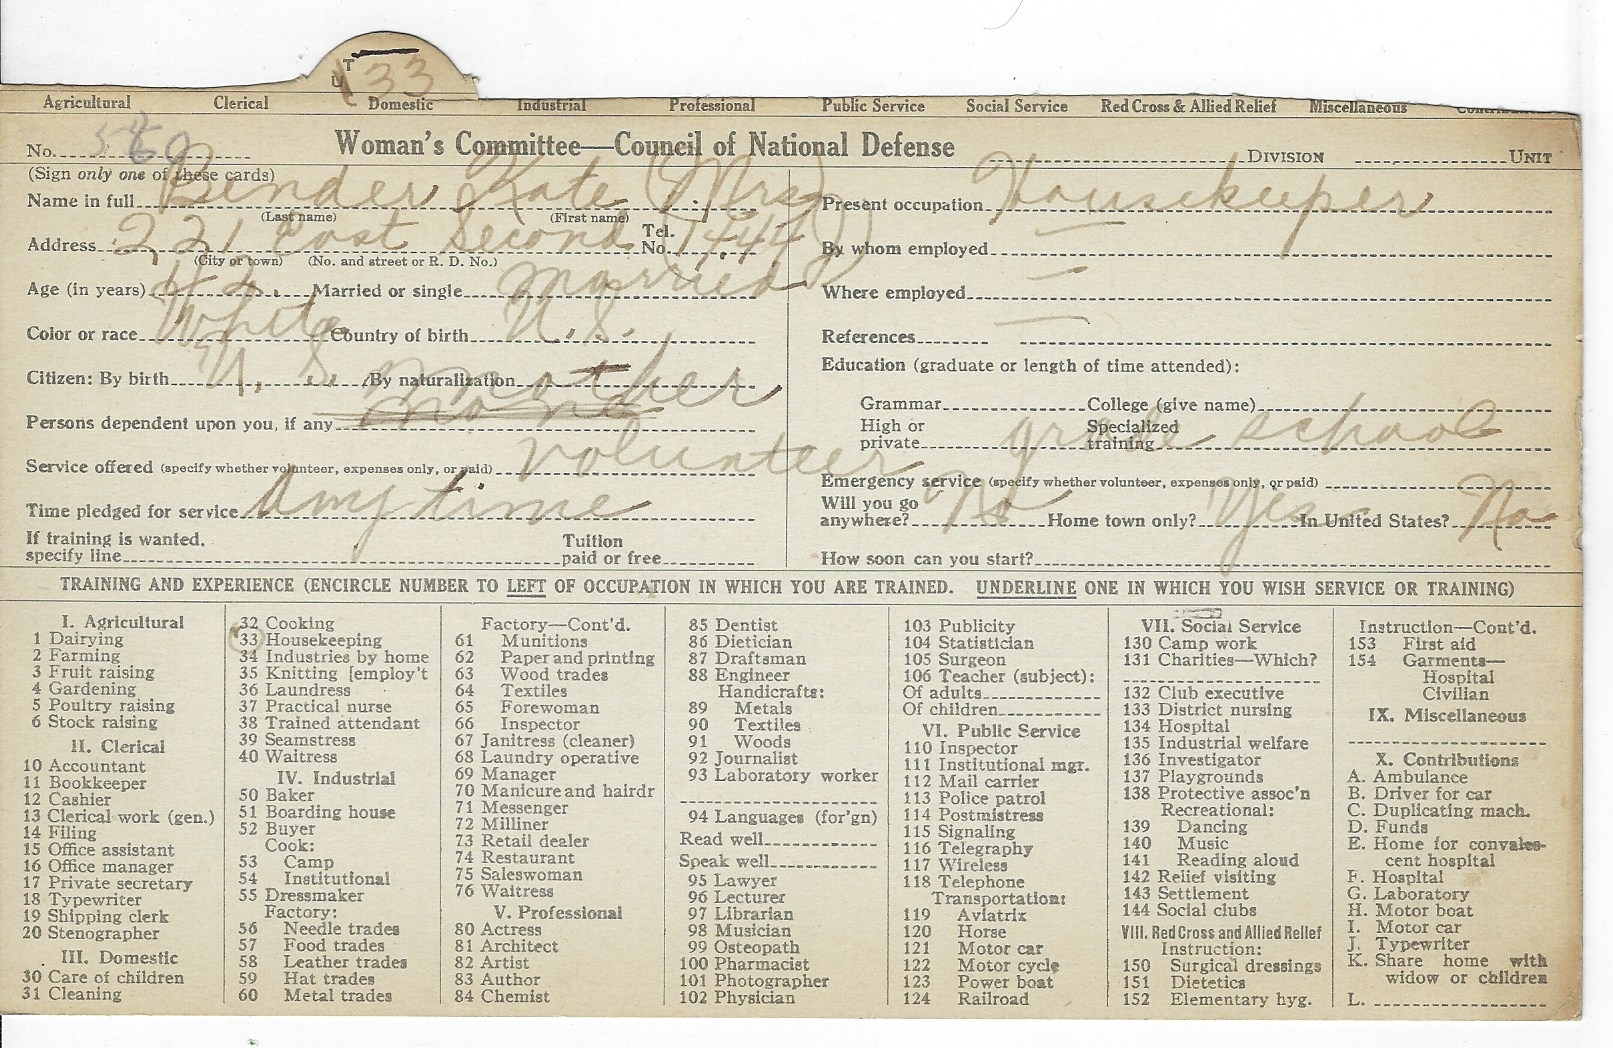 T
U 33
Agricultural Clerical Domestic Industrial Professional Public Service Social Service Red Cross & Allied Relief Miscellaneous
No. 560 Woman's Committee—Council of National Defense DIVISION UNIT
(Sign only one of these cards)
Name in full Bender Kate (Mrs)
(Last name) (First name)
Address 221 East Second Tel. No. 1444 J
(City or town) (No. and street or R. D. No.)
Age (in years) 42. Married or single Married
Color or race White Country of birth U.S.
Citizen: By birth U. S. By naturalization
Persons dependent upon you, if any none mother
Service offered (specify whether volunteer, expenses only, or paid) volunteer
Time pledged for service Any time
If training is wanted, specify line Tuition paid or free
Present occupation Housekeeper
By whom employed —
Where employed —
References —
Education (graduate or length of time attended):
Grammar College (give name)
High or private Specialized training
grade school
Emergency service (specify whether volunteer, expenses only, or paid)
Will you go anywhere? No Home town only? Yes In United States? No
How soon can you start?
TRAINING AND EXPERIENCE (ENCIRCLE NUMBER TO LEFT OF OCCUPATION IN WHICH YOU ARE TRAINED. UNDERLINE ONE IN WHICH YOU WISH SERVICE OR TRAINING)
I. Agricultural
1 Dairying
2 Farming
3 Fruit raising
4 Gardening
5 Poultry raising
6 Stock raising
II. Clerical
10 Accountant
11 Bookkeeper
12 Cashier
13 Clerical work (gen.)
14 Filing
15 Office assistant
16 Office manager
17 Private secretary
18 Typewriter
19 Shipping clerk
20 Stenographer
III. Domestic
30 Care of children
31 Cleaning
32 Cooking
33 Housekeeping
34 Industries by home
35 Knitting [employ't
36 Laundress
37 Practical nurse
38 Trained attendant
39 Seamstress
40 Waitress
IV. Industrial
50 Baker
51 Boarding house
52 Buyer
Cook:
53 Camp
54 Institutional
55 Dressmaker
Factory:
56 Needle trades
57 Food trades
58 Leather trades
59 Hat trades
60 Metal trades
Factory—Cont'd.
61 Munitions
62 Paper and printing
63 Wood trades
64 Textiles
65 Forewoman
66 Inspector
67 Janitress (cleaner)
68 Laundry operative
69 Manager
70 Manicure and hairdr
71 Messenger
72 Milliner
73 Retail dealer
74 Restaurant
75 Saleswoman
76 Waitress
V. Professional
80 Actress
81 Architect
82 Artist
83 Author
84 Chemist
85 Dentist
86 Dietician
87 Draftsman
88 Engineer
Handicrafts:
89 Metals
90 Textiles
91 Woods
92 Journalist
93 Laboratory worker
94 Languages (for'gn)
Read well
Speak well
95 Lawyer
96 Lecturer
97 Librarian
98 Musician
99 Osteopath
100 Pharmacist
101 Photographer
102 Physician
103 Publicity
104 Statistician
105 Surgeon
106 Teacher (subject):
Of adults
Of children
VI. Public Service
110 Inspector
111 Institutional mgr.
112 Mail carrier
113 Police patrol
114 Postmistress
115 Signaling
116 Telegraphy
117 Wireless
118 Telephone
Transportation:
119 Aviatrix
120 Horse
121 Motor car
122 Motor cycle
123 Power boat
124 Railroad
VII. Social Service
130 Camp work
131 Charities—Which?
132 Club executive
133 District nursing
134 Hospital
135 Industrial welfare
136 Investigator
137 Playgrounds
138 Protective assoc'n
Recreational:
139 Dancing
140 Music
141 Reading aloud
142 Relief visiting
143 Settlement
144 Social clubs
VIII. Red Cross and Allied Relief
Instruction:
150 Surgical dressings
151 Dietetics
152 Elementary hyg.
Instruction—Cont'd.
153 First aid
154 Garments—
Hospital
Civilian
IX. Miscellaneous
X. Contributions
A. Ambulance
B. Driver for car
C. Duplicating mach.
D. Funds
E. Home for convales-
cent hospital
F. Hospital
G. Laboratory
H. Motor boat
I. Motor car
J. Typewriter
K. Share home with
widow or children
L.